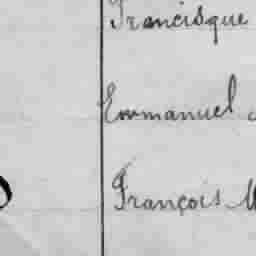 Francisque
Emmanuel
François